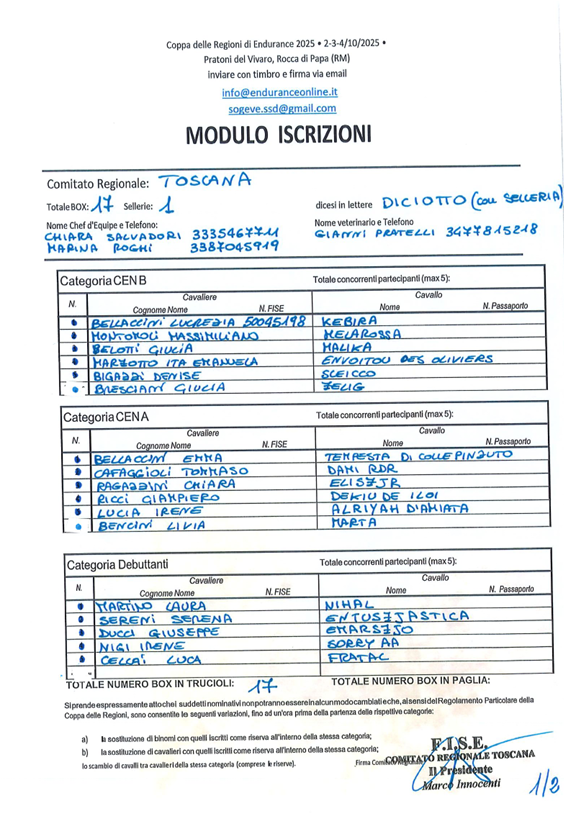 Coppa delle Regioni di Endurance 2025 • 2-3-4/10/2025 •
Pratoni del Vivaro, Rocca di Papa (RM)
inviare con timbro e firma via email
info@enduranceonline.it
sogeve.ssd@gmail.com
MODULO ISCRIZIONI
Comitato Regionale: TOSCANA
Totale BOX: 17 Sellerie: 1 dicesi in lettere DICIOTTO (con SELLERIA)
Nome Chef d'Equipe e Telefono: Nome veterinario e Telefono
CHIARA SALVADORI 3335467711 GIANNI PRATELLI 3477815218
MARINA ROGHI 3387045919
Categoria CEN B Totale concorrenti partecipanti (max 5):
N. Cavaliere Cavallo
Cognome Nome N. FISE Nome N. Passaporto
BELLACCINI LUCREZIA 50045198 KEBIRA
MONTOMOLI MASSIMILIANO MELAROSSA
BELOTTI GIULIA MALIKA
MARZOTTO ITA EMANUELA ENVOITOU DES OLIVIERS
BIGAZZI DENISE SCEICCO
BRESCIANI GIULIA ZELIG
Categoria CEN A Totale concorrenti partecipanti (max 5):
N. Cavaliere Cavallo
Cognome Nome N. FISE Nome N. Passaporto
BELLACCINI EMMA TEMPESTA DI COLLEPINZUTO
CAFAGGIOLI TOMMASO DAMI RDR
RAGAZZINI CHIARA
RICCI GIAMPIERO
LUCIA IRENE ALRIYAH D'AMIATA
BENCINI LIVIA MARTA
Categoria Debuttanti Totale concorrenti partecipanti (max 5):
N. Cavaliere Cavallo
Cognome Nome N. FISE Nome N. Passaporto
MARTINO LAURA NIHAL
SERENI SERENA ENTUSIJASTICA
DUCCI GIUSEPPE
NIGI IRENE SORRY AA
CELLAI LUCA FRATAC
TOTALE NUMERO BOX IN TRUCIOLI: 17 TOTALE NUMERO BOX IN PAGLIA:
Si prende espressamente atto che i suddetti nominativi non potranno essere in alcun modo cambiati e che, ai sensi del Regolamento Particolare della
Coppa delle Regioni, sono consentite le seguenti variazioni, fino ad un'ora prima della partenza delle rispettive categorie:
a) la sostituzione di binomi con quelli iscritti come riserva all'interno della stessa categoria;
b) la sostituzione di cavalieri con quelli iscritti come riserva all'interno della stessa categoria;
lo scambio di cavalli tra cavalieri della stessa categoria (comprese le riserve).
Firma Comitato Regionale
F.I.S.E.
COMITATO REGIONALE TOSCANA
Il Presidente
Marco Innocenti
1/2